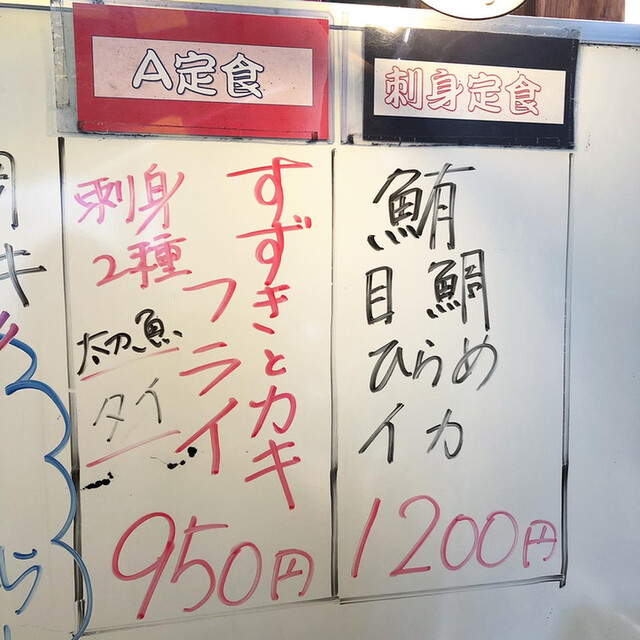 A定食
すずきとカキ
フライ
刺身
2種
太刀魚
タイ
950円
刺身定食
鮪
目鯛
ひらめ
イカ
1200円